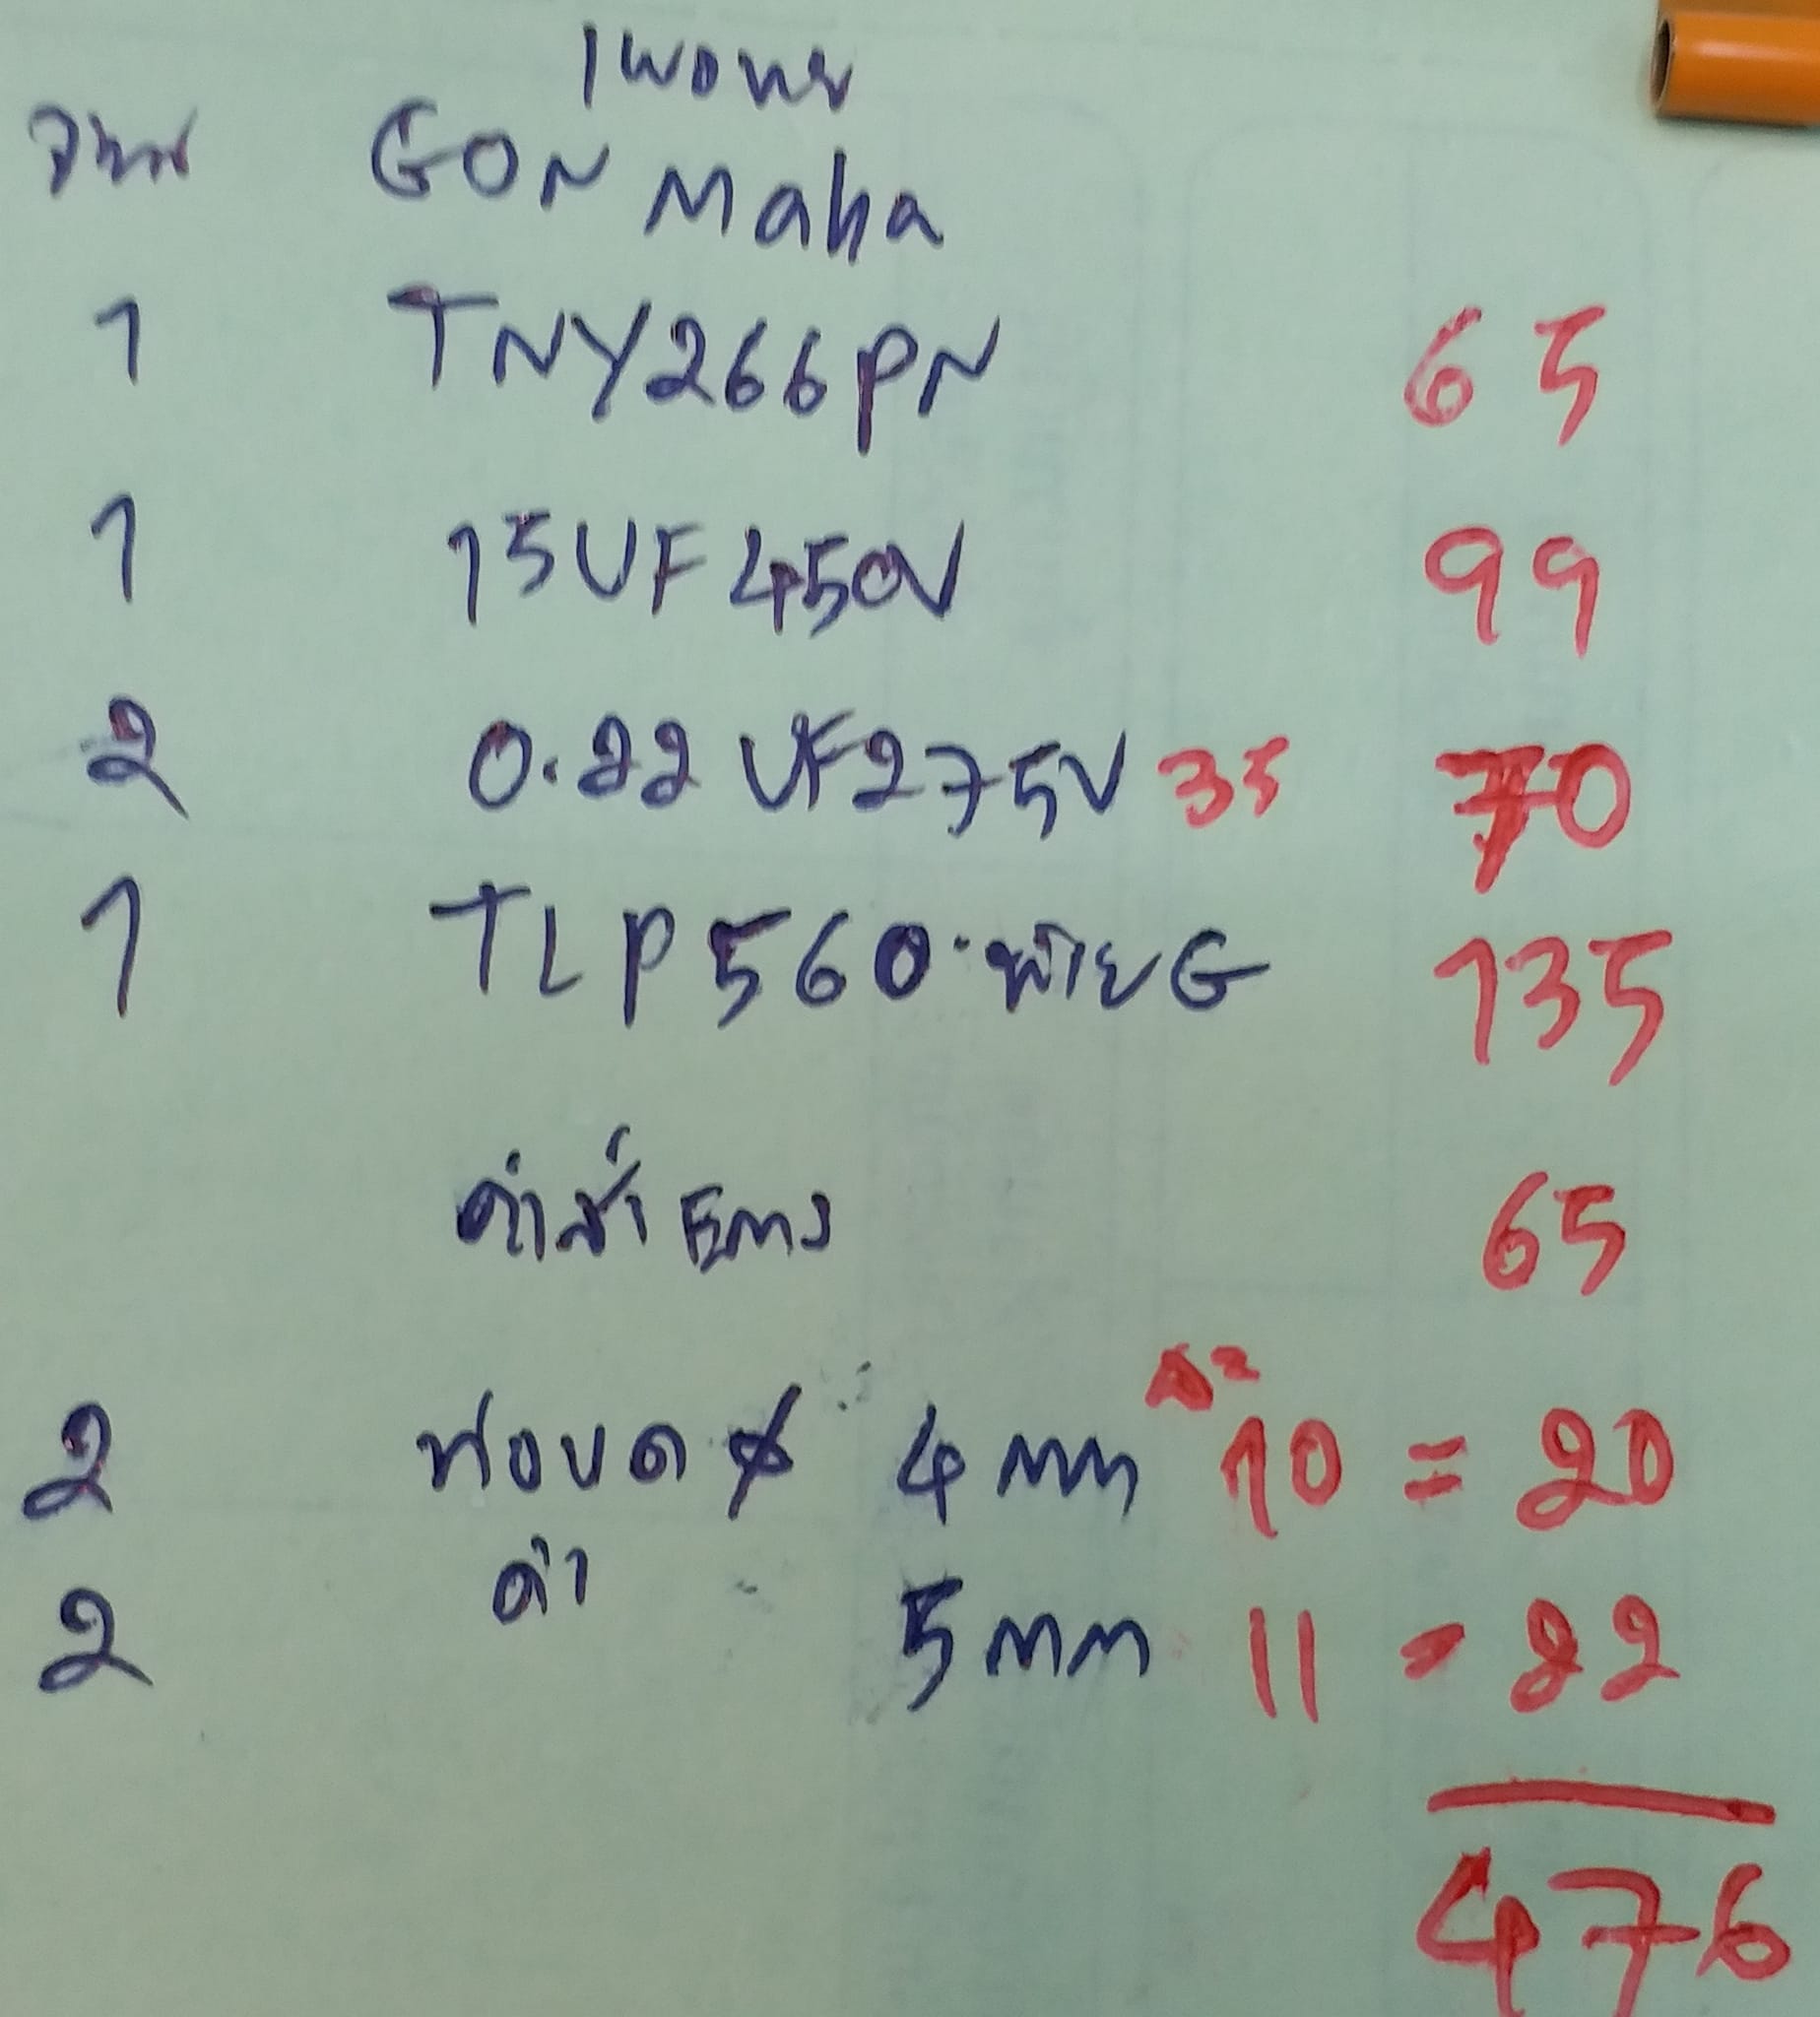 GON Maha
1 TNY266PN 65
1 15UF 450V 99
2 0.22 UF275V 35 70
1 TLP560 G 135
ค่าส่ง Ems 65
2 ท่อหด 4 mm 10 = 20
ดำ
2 5mm 11 = 22
476